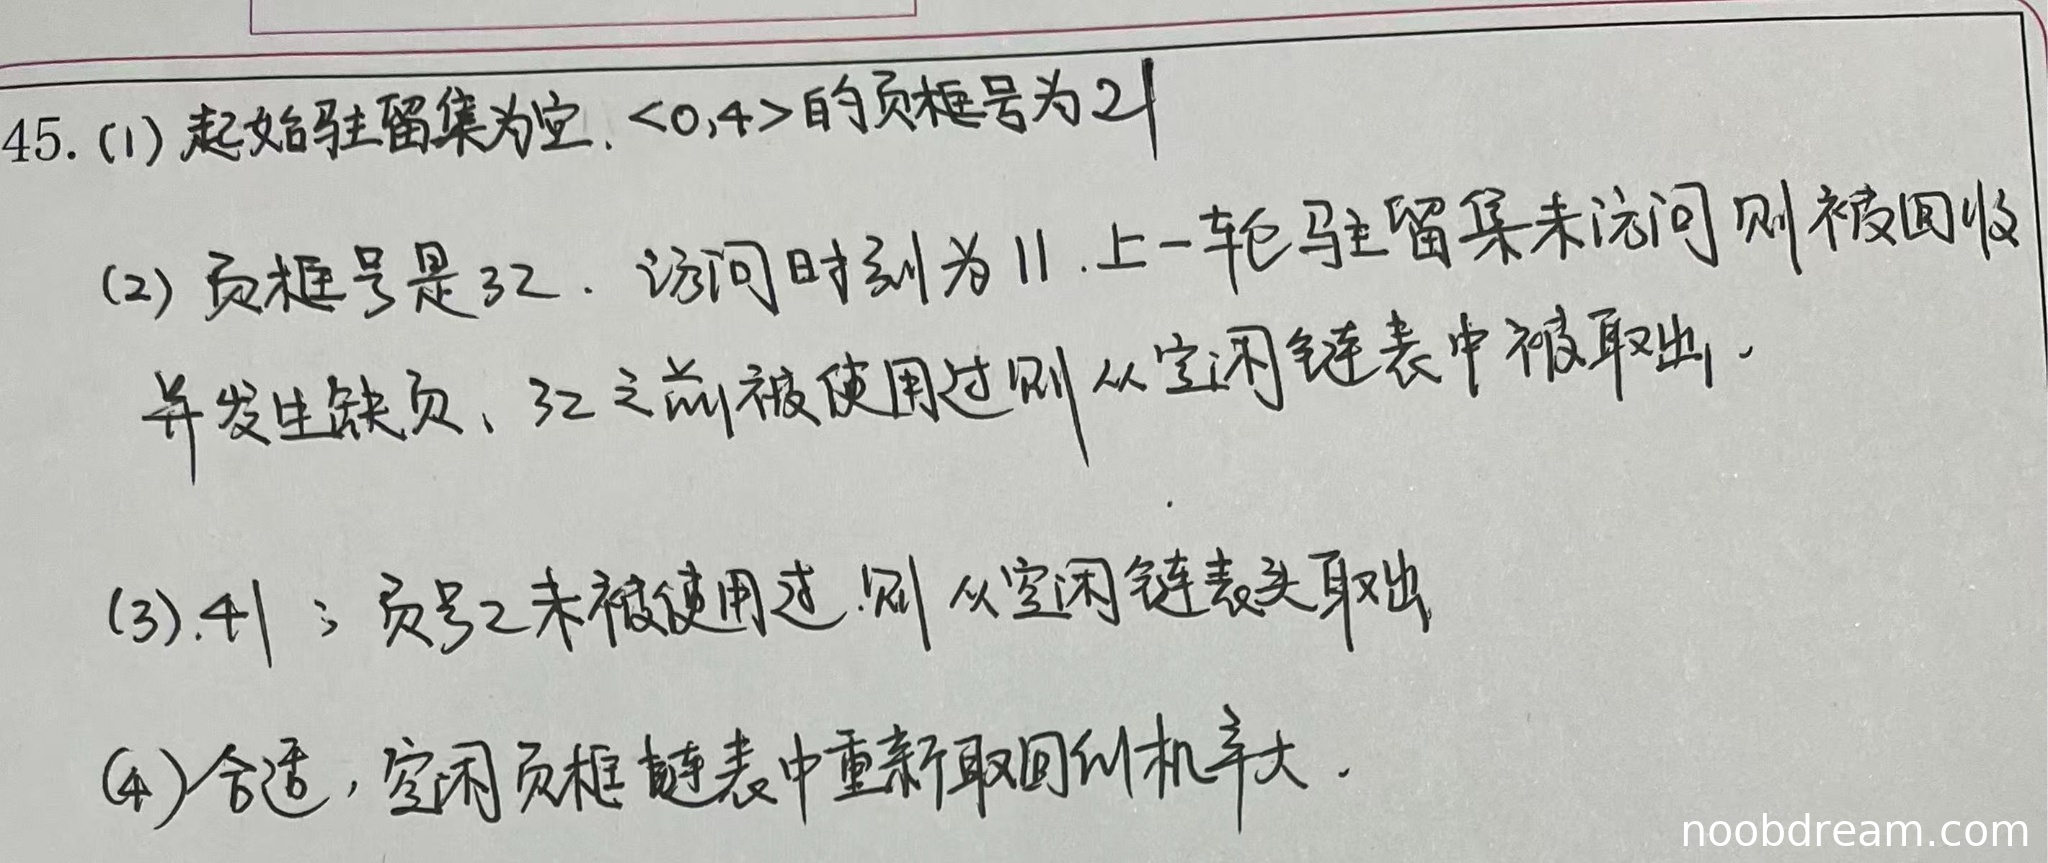 45. (1) 起始驻留集为空. <0,4>的页框号为21
(2) 页框号是32. 访问时刻为11. 上一轮驻留集未访问则被回收
并发生缺页、32之前被使用过则从空闲链表中被取出.
(3). 41; 页号2未被使用过.则从空闲链表头取出
(4) 合适, 空闲页框链表中重新取回的机率大.
noobdream.com